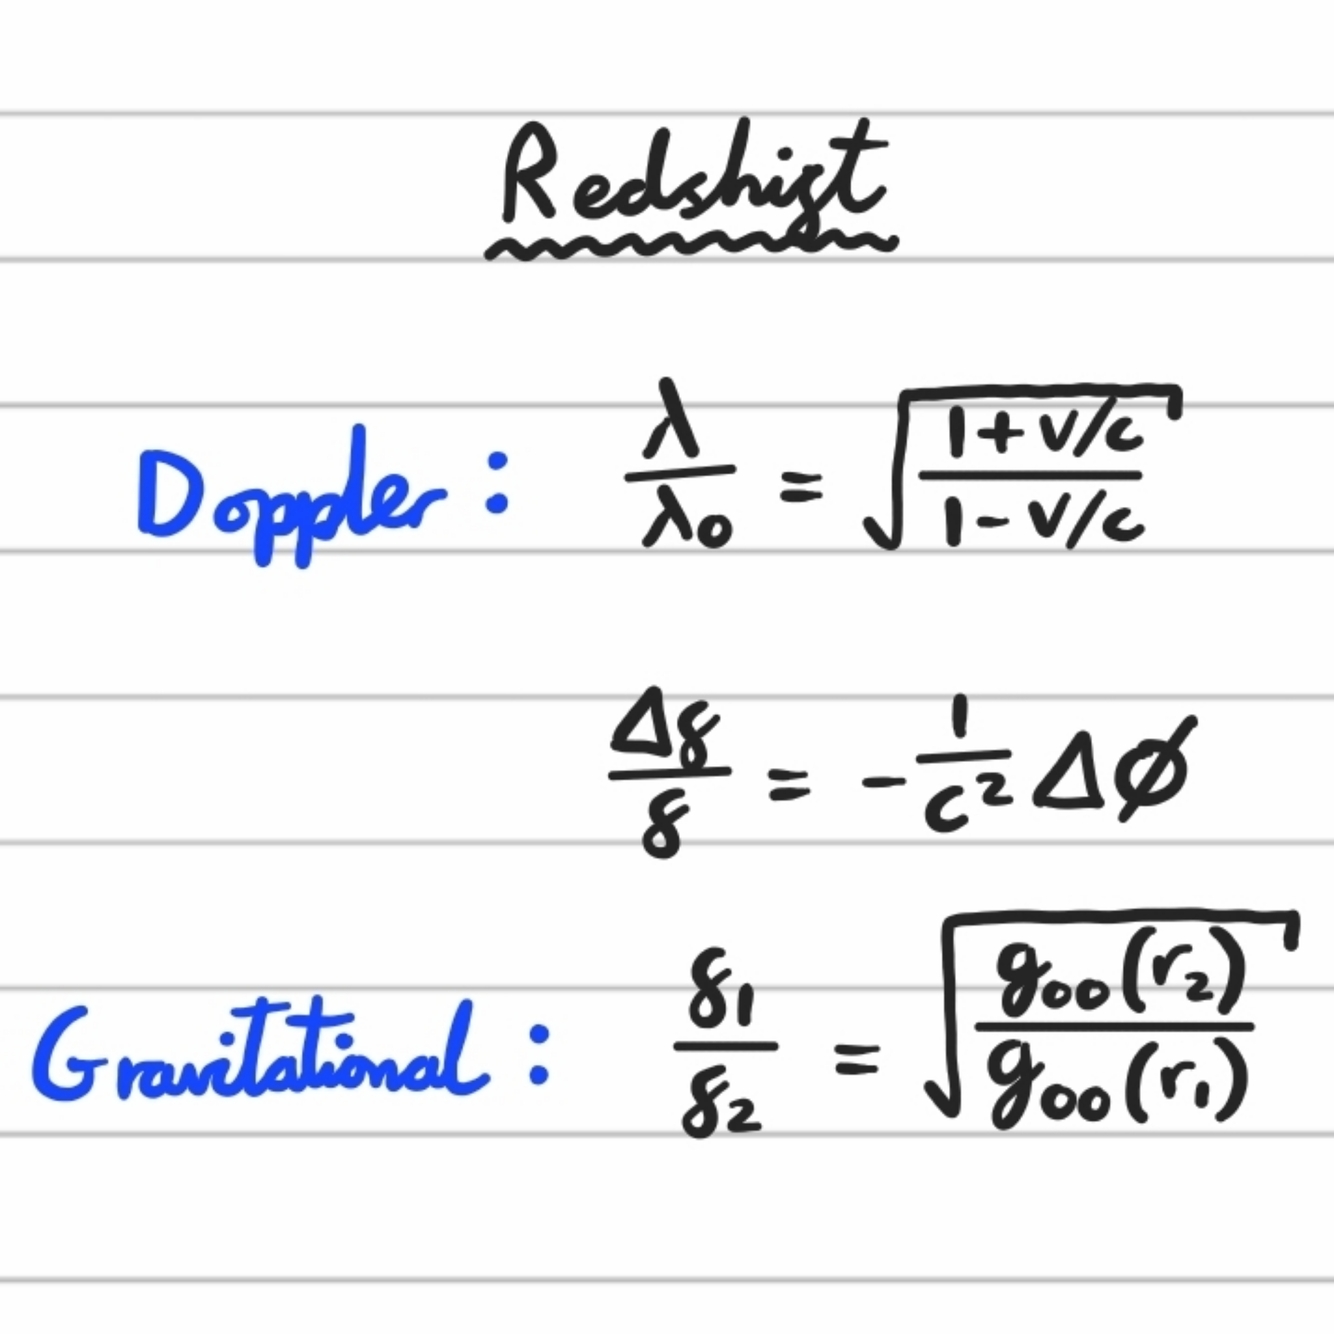 Redshift
Doppler : λ/λ₀ = √((1 + v/c)/(1 - v/c))
Δf/f = -1/c² Δϕ
Gravitational : f₁/f₂ = √(g₀₀(r₂)/g₀₀(r₁))